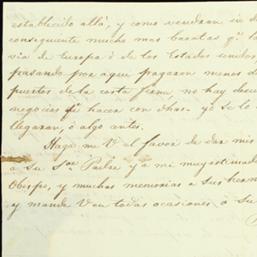 establecido allá, y como venderan su d
consequente mucho mas barato q.e l
via de Europa ó de los Estados unidos,
pasando por aqui pagaron menos d
puertos de la costa firme no hay
negocios q.e hacer con dhas. yo se lo
llegaron, ó algo antes.
Haga me V el favor de dar mis
a Su S.or Padre y a mi muy estimad
Obispo, y muchas memorias a sus herm
y mande V en todas ocasiones á Su